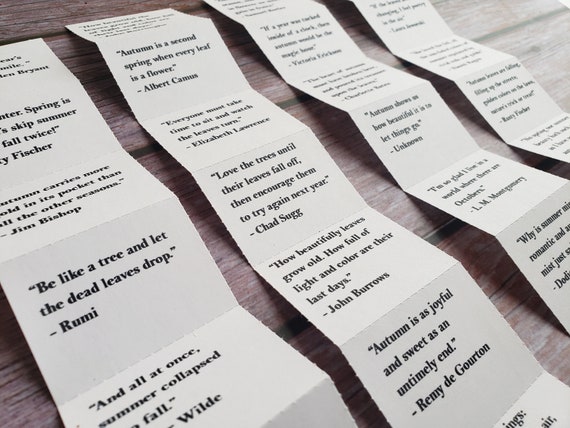 ear's
en Bryant
nter. Spring is
's skip summer
fall twice!"
ty Fischer
utumn carries more
old in its pocket than
all the other seasons-
- Jim Bishop
"Be like a tree and let
the dead leaves drop."
- Rumi
"And all at once,
summer collapsed
fall."
- Wilde
"How beautiful the
"Autumn is a second
spring when every leaf
is a flower."
- Albert Camus
"Everyone must take
time to sit and watch
the leaves turn."
- Elizabeth Lawrence
"Love the trees until
their leaves fall off,
then encourage them
to try again next year."
- Chad Sugg
"How beautifully leaves
grow old. How full of
light and color are their
last days."
- John Burrows
"Autumn is as joyful
and sweet as an
untimely end."
- Remy de Gourton
"If a year was tucked
inside of a clock, then
autumn would be the
magic hour."
- Victoria Erickson
"Autumn shows us
how beautiful it is to
let things go."
- Unknown
"I'm so glad I live in a
world where there are
Octobers"
- L. M. Montgomery
"Why is summer mis
romantic and a
mist just s
"Autumn leaves are falling,
filling up the streets,
golden colors on the lawn,
nature's trick or treat!"
- Rusty Fischer